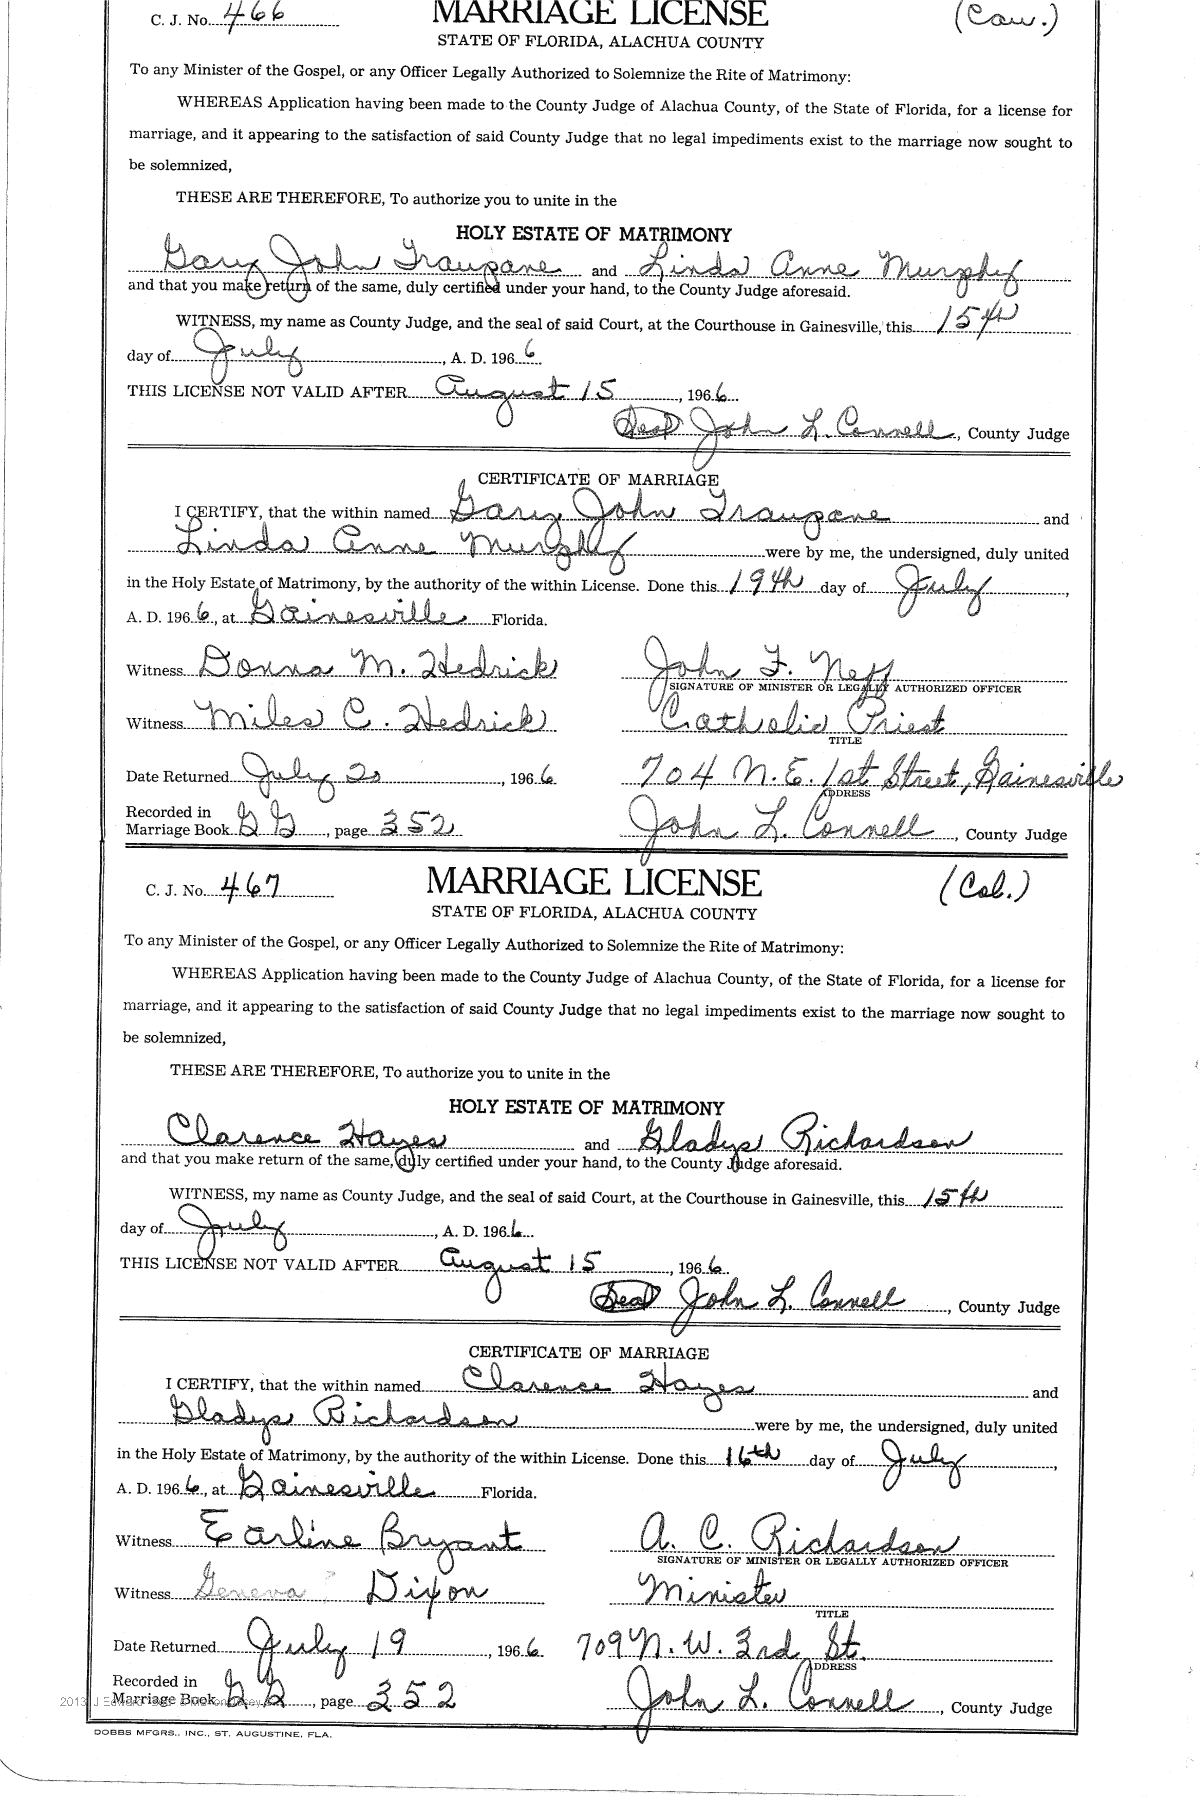 C. J. No. 466 MARRIAGE LICENSE (Cau.)
STATE OF FLORIDA, ALACHUA COUNTY
To any Minister of the Gospel, or any Officer Legally Authorized to Solemnize the Rite of Matrimony:
WHEREAS Application having been made to the County Judge of Alachua County, of the State of Florida, for a license for
marriage, and it appearing to the satisfaction of said County Judge that no legal impediments exist to the marriage now sought to
be solemnized,
THESE ARE THEREFORE, To authorize you to unite in the
HOLY ESTATE OF MATRIMONY
Gary John Traupane and Linda Anne Murphy
and that you make return of the same, duly certified under your hand, to the County Judge aforesaid.
WITNESS, my name as County Judge, and the seal of said Court, at the Courthouse in Gainesville, this 15th
day of July, A. D. 1966
THIS LICENSE NOT VALID AFTER August 15, 1966
(Seal) John L. Connell, County Judge
CERTIFICATE OF MARRIAGE
I CERTIFY, that the within named Gary John Traupane and
Linda Anne Murphy were by me, the undersigned, duly united
in the Holy Estate of Matrimony, by the authority of the within License. Done this 19th day of July,
A. D. 1966, at Gainesville Florida.
Witness Donna M. Hedrick John F. Neff
SIGNATURE OF MINISTER OR LEGALLY AUTHORIZED OFFICER
Witness Miles C. Hedrick Catholic Priest
TITLE
Date Returned July 20, 1966 704 N.E. 1st Street, Gainesville
ADDRESS
Recorded in
Marriage Book GG, page 352 John L. Connell, County Judge
C. J. No. 467 MARRIAGE LICENSE (Col.)
STATE OF FLORIDA, ALACHUA COUNTY
To any Minister of the Gospel, or any Officer Legally Authorized to Solemnize the Rite of Matrimony:
WHEREAS Application having been made to the County Judge of Alachua County, of the State of Florida, for a license for
marriage, and it appearing to the satisfaction of said County Judge that no legal impediments exist to the marriage now sought to
be solemnized,
THESE ARE THEREFORE, To authorize you to unite in the
HOLY ESTATE OF MATRIMONY
Clarence Hayes and Gladys Richardson
and that you make return of the same, duly certified under your hand, to the County Judge aforesaid.
WITNESS, my name as County Judge, and the seal of said Court, at the Courthouse in Gainesville, this 15th
day of July, A. D. 1966
THIS LICENSE NOT VALID AFTER August 15, 1966
(Seal) John L. Connell, County Judge
CERTIFICATE OF MARRIAGE
I CERTIFY, that the within named Clarence Hayes and
Gladys Richardson were by me, the undersigned, duly united
in the Holy Estate of Matrimony, by the authority of the within License. Done this 16th day of July,
A. D. 1966, at Gainesville Florida.
Witness Earline Bryant A. C. Richardson
SIGNATURE OF MINISTER OR LEGALLY AUTHORIZED OFFICER
Witness Geneva ? Dixon Minister
TITLE
Date Returned July 19, 1966 709 N. W. 3rd St.
ADDRESS
Recorded in
Marriage Book GG, page 352 John L. Connell, County Judge
2013 J
DOBBS MFGRS., INC., ST. AUGUSTINE, FLA.